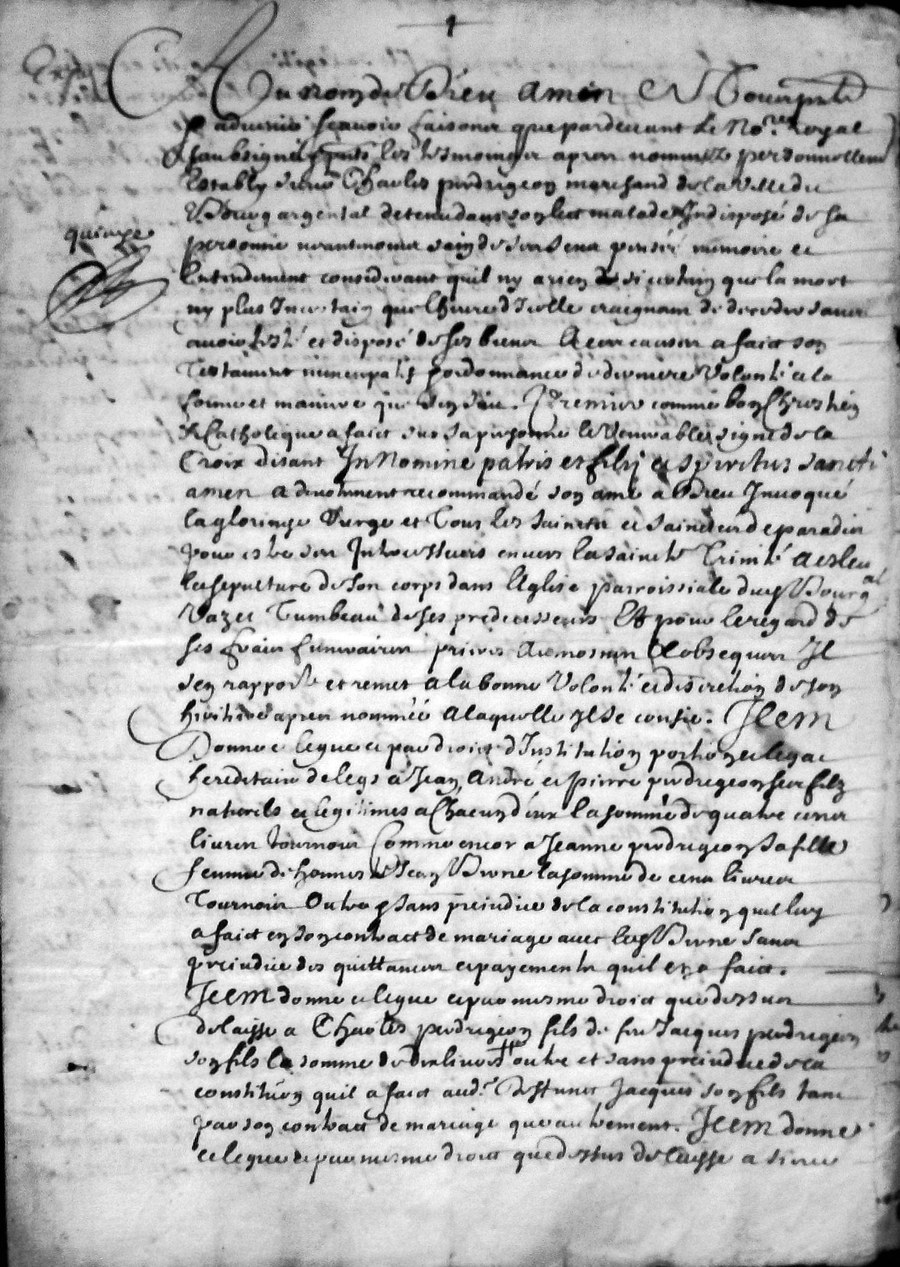 1
Exp.
Au nom de Dieu amen A Tous pntz
& advenir scavoir faisons que pardevant le No.re Royal
soubsigné & pntz les tesmoingz apres nommez personnellemt
estably sieur Charles perdrigeon marchand de la ville du
Bourg argental detenu dans son lict malade Indisposé de sa
quinze
personne neantmoins sain de ses sens pensée memoire et
Entendement considerant quil ny a rien de si certain que la mort
ny plus Incertain que lheure dIcelle craignant de deceder sans
avoir testé et disposé de ses biens A ces causes a faict son
Testament nuncupatif & ordonnance de derniere Volonté a la
forme et maniere que sen suit. Premier comme bon Chrestien
& Catholique a faict sur sa personne le Venerable signe de la
Croix disant In Nomine patris et filij et spiritus sancti
amen a devotement recommandé son ame a Dieu Invoqué
la glorieuse Vierge et Tous les Saincts et Sainctes de paradis
pour estre ses Intercesseurs envers la saincte Trinité a esleu
la sepulture de son corps dans lEglise parroissiale dud Bourg al
Vaz et Tumbeau de ses predecesseurs Et pour le regard de
ses frais funeraires prieres aumosnes & obseques Il
sen rapporte et remet a la bonne Volonté et discretion de son
heritiere apres nommée a laquelle Il se confie. Item
Donne legue et par droict dInstitution portion et legat
hereditaire delegs a Jean, André et Pierre perdrigeon ses filz
naturels et legitimes a Chacun deux la somme de quatre cens
livres tournois Comme encor a Jeanne perdrigeon sa fille
femme de honneste Jean Berne la somme de cens livres
Tournois Outre & sans prejudice de la constitution quil luy
a faict en son contract de mariage avec led Berne sans
prejudice des quittances et payements quil en a faict.
Item donne et legue et par mesme droict que dessus
delaisse a Charles perdrigeon fils de feu Jacques perdrigeon
son fils la somme de dix livres tt outre et sans prejudice de la
constitution quil a faict aud. deffunct Jacques son fils tant
par son contract de mariage que autrement. Item donne
et legue et par mesme droict que dessus delaisse a sieur